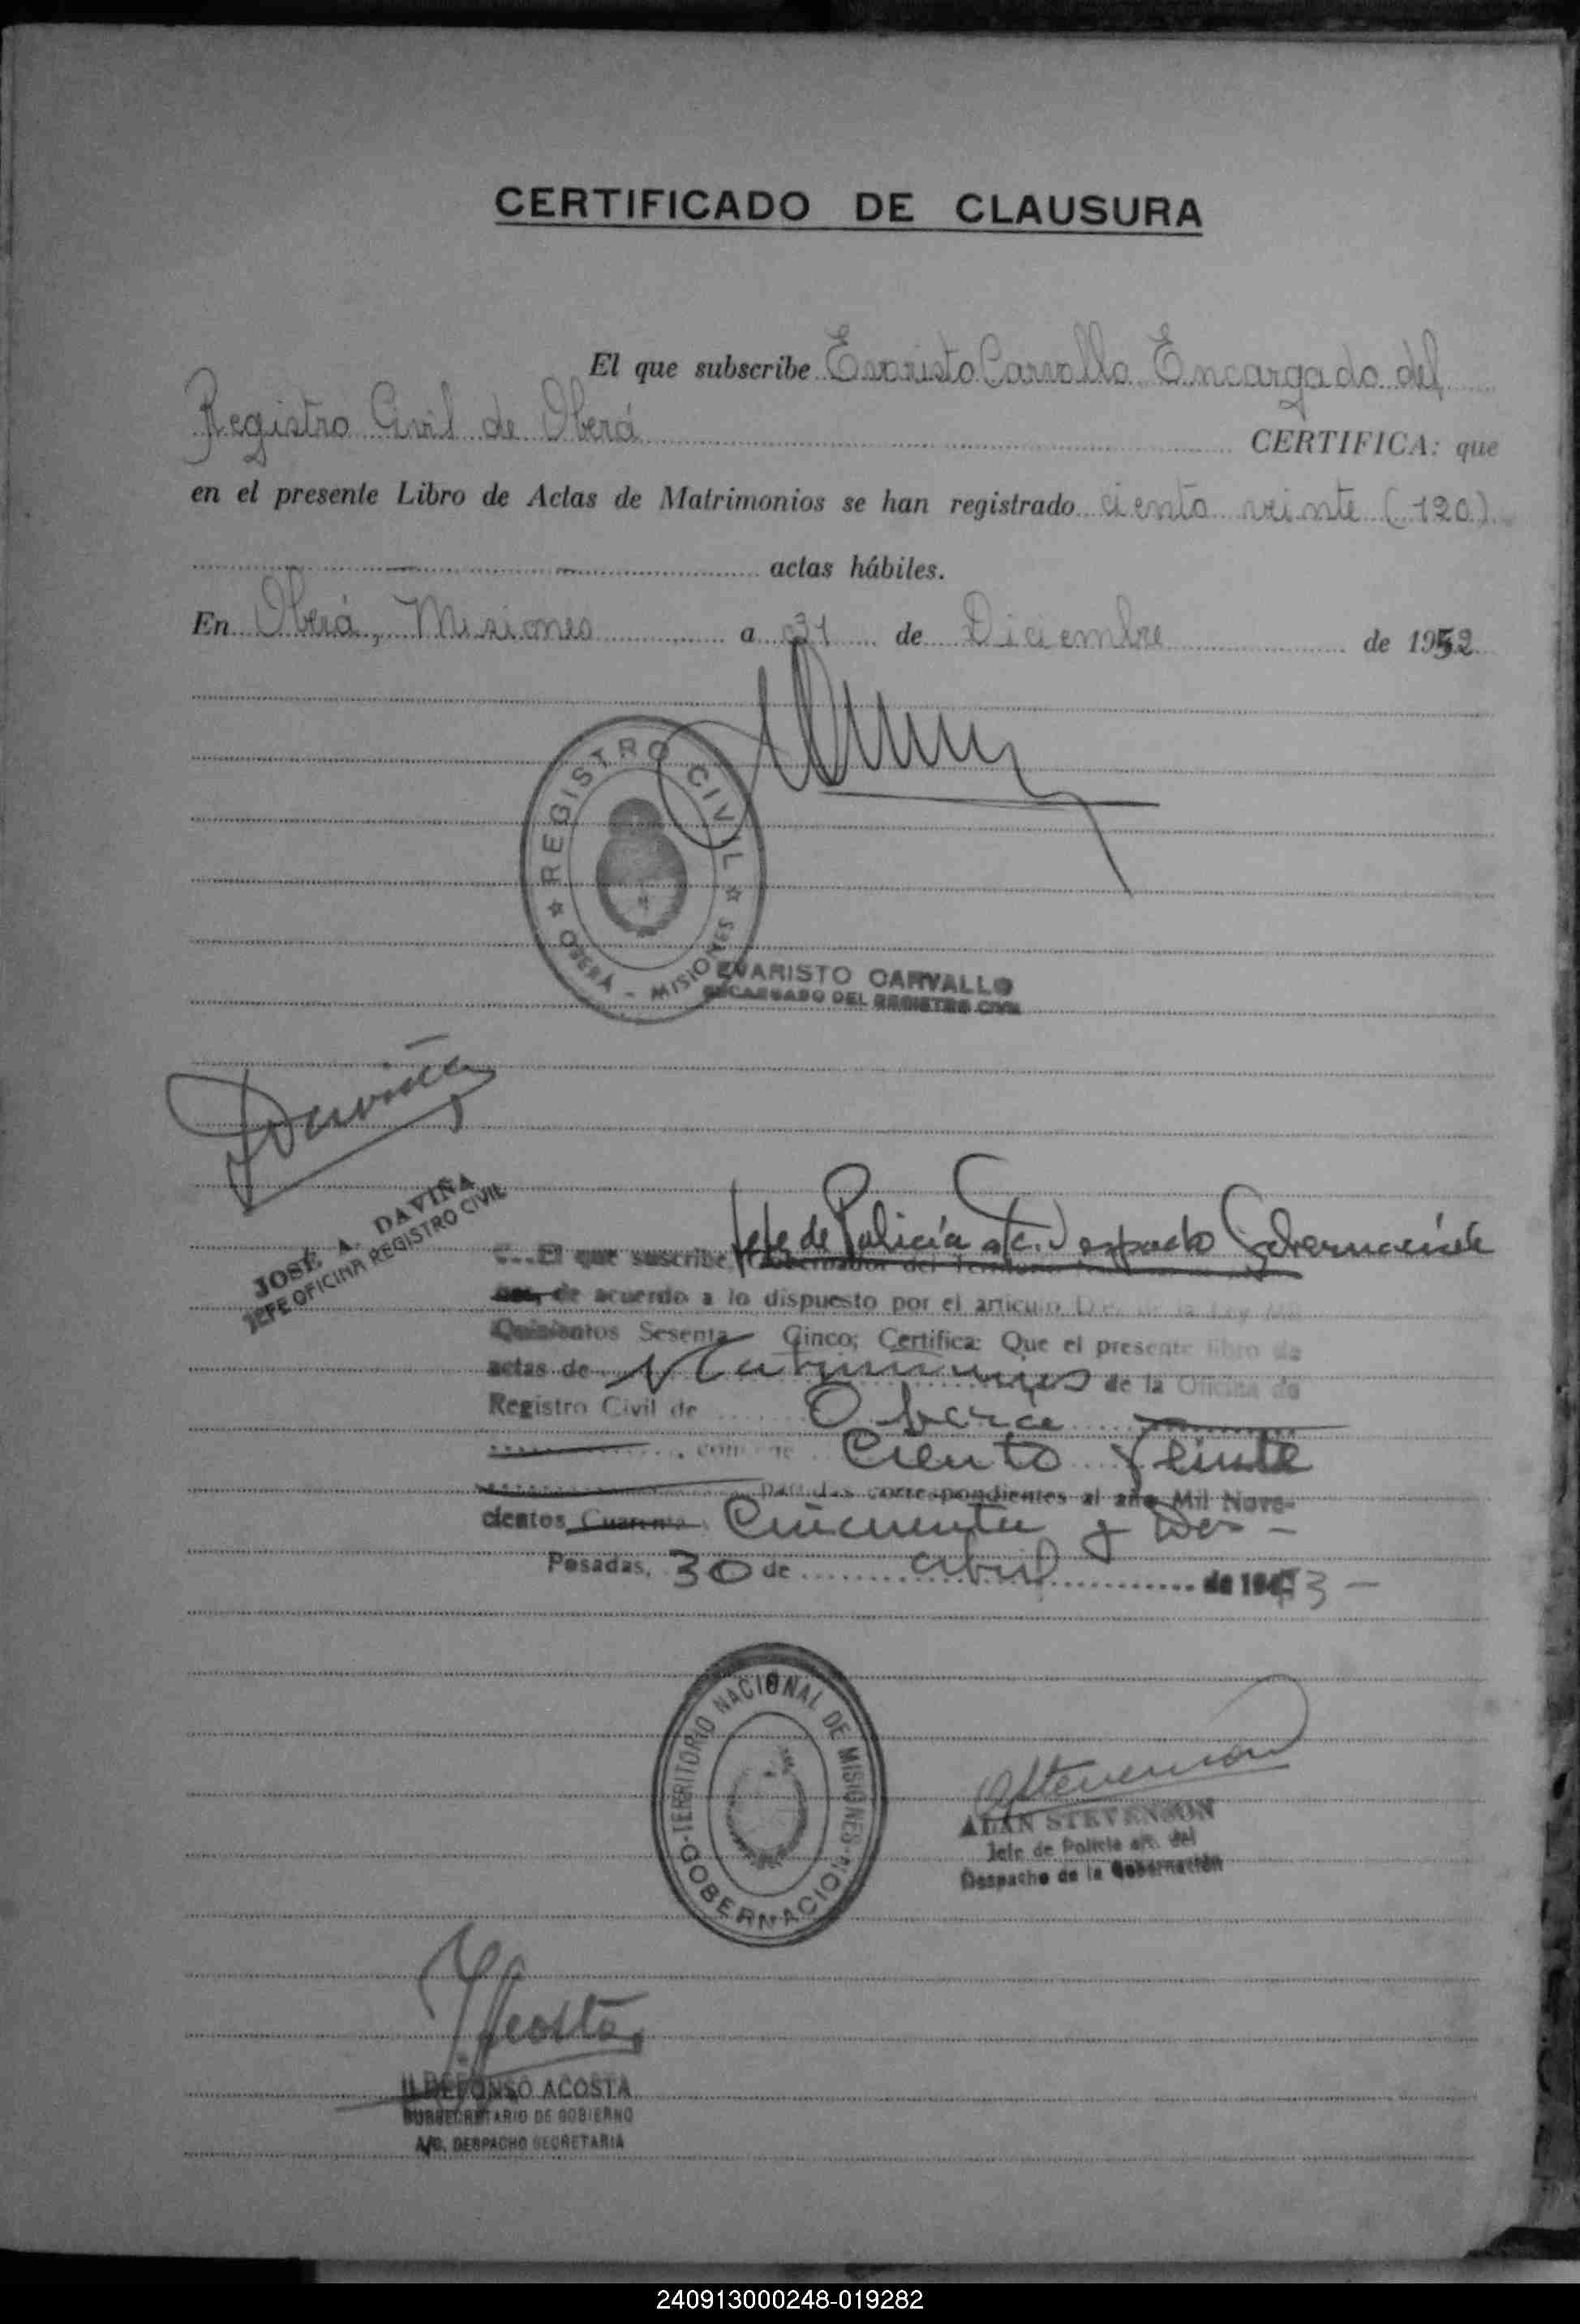 CERTIFICADO DE CLAUSURA
El que subscribe Evaristo Carvallo Encargado del
Registro Civil de Oberá CERTIFICA: que
en el presente Libro de Actas de Matrimonios se han registrado ciento veinte (120)
actas hábiles.
En Oberá, Misiones a 31 de Diciembre de 1952
REGISTRO CIVIL
OBERÁ - MISIONES
EVARISTO CARVALLO
ENCARGADO DEL REGISTRO CIVIL
Daviña
JOSÉ A. DAVIÑA
JEFE OFICINA REGISTRO CIVIL
Jefe de Policía a/c. Despacho Gobernación
El que suscribe, Gobernador del Territorio
de acuerdo a lo dispuesto por el artículo de la Ley Mil
Quinientos Sesenta Cinco; Certifica: Que el presente libro de
actas de Matrimonios de la Oficina de
Registro Civil de Oberá
contiene Ciento Veinte
partidas correspondientes al año Mil Nove-
cientos Cuarenta Cincuenta y Dos -
Posadas, 30 de abril de 1953 -
TERRITORIO NACIONAL DE MISIONES
GOBERNACION
Stevenson
ALAN STEVENSON
Jefe de Policía a/c. del
Despacho de la Gobernación
Acosta
ILDEFONSO ACOSTA
SUBSECRETARIO DE GOBIERNO
A/C. DESPACHO SECRETARIA
240913000248-019282